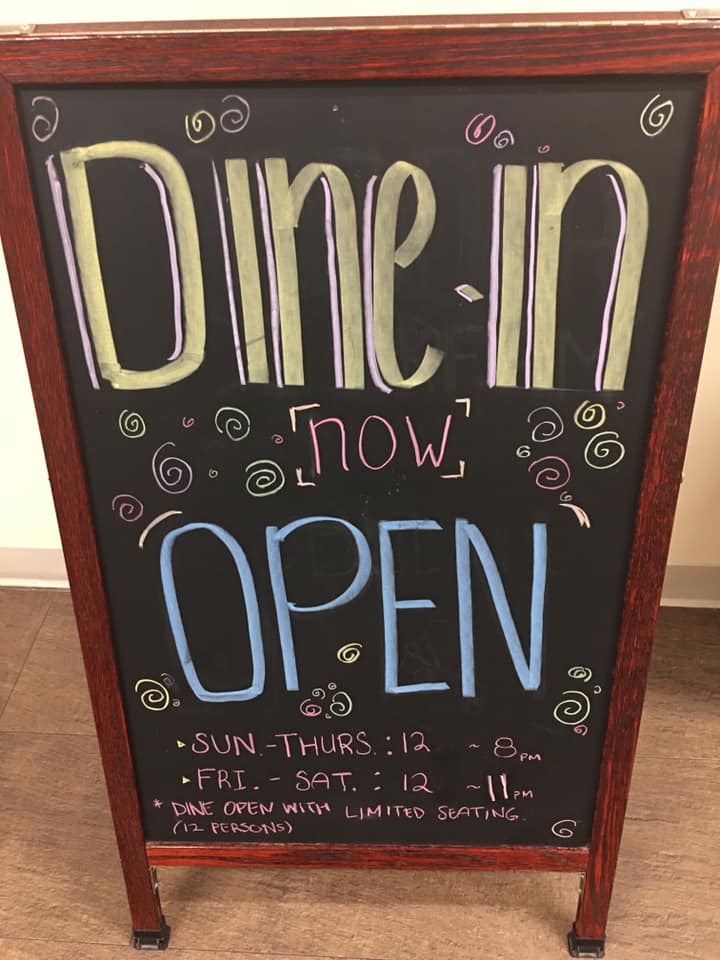 Dine-in
now
OPEN
SUN.-THURS.: 12 ~ 8PM
FRI. - SAT. : 12 ~ 11PM
* DINE OPEN WITH LIMITED SEATING.
(12 PERSONS)